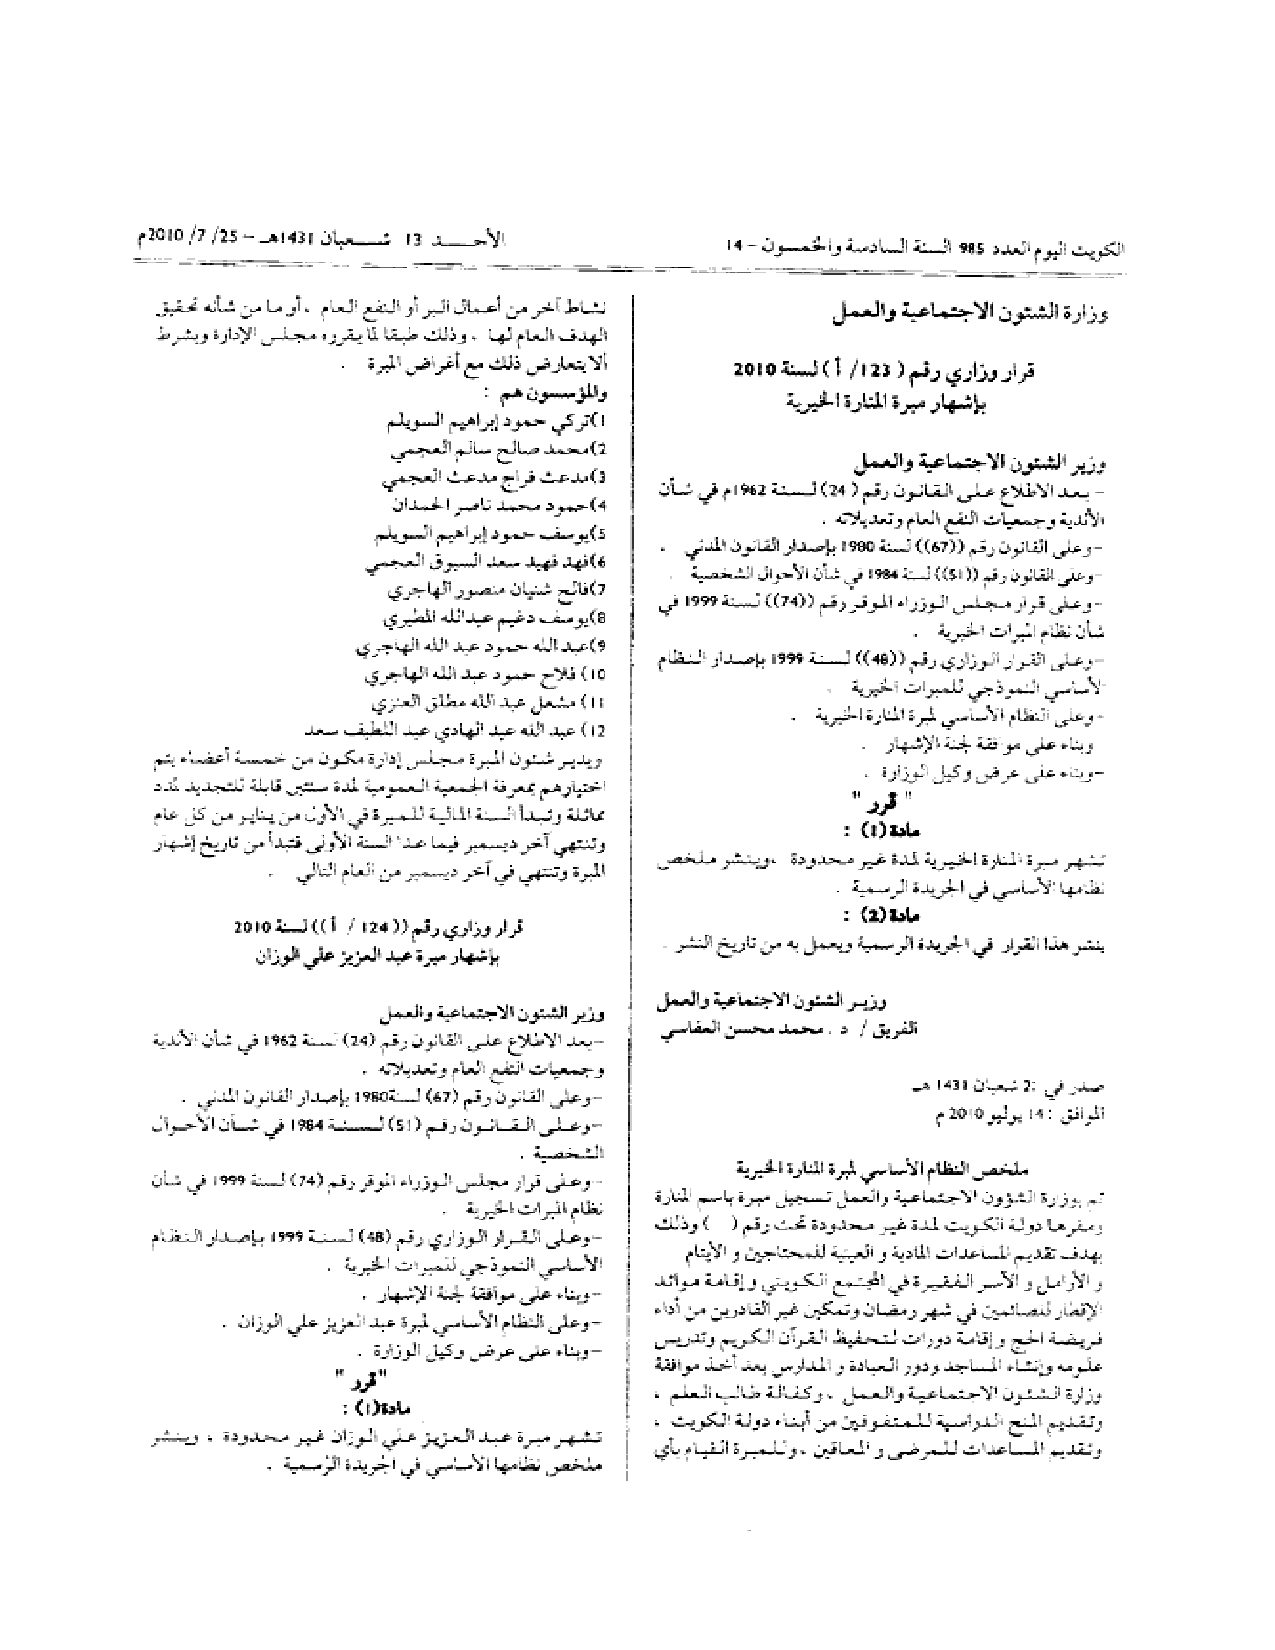 الكويت اليوم العدد 985 السنة السادسة والخمسون - 14
الأحـــد 13 شـــعبان 1431هـ - 25/ 7/ 2010م
وزارة الشئون الاجتماعية والعمل
قرار وزاري رقم ( 123/ أ ) لسنة 2010
بإشهار مبرة المنارة الخيرية
وزير الشئون الاجتماعية والعمل
- بعد الاطلاع على القانون رقم ( 24) لسنة 1962م في شأن
الأندية وجمعيات النفع العام وتعديلاته .
-وعلى القانون رقم ((67)) لسنة 1980 بإصدار القانون المدني .
-وعلى القانون رقم ((51)) لسنة 1984 في شأن الأحوال الشخصية .
-وعلى قرار مجلس الوزراء الموقر رقم ((74)) لسنة 1999 في
شأن نظام المبرات الخيرية .
-وعلى القرار الوزاري رقم ((48)) لسنة 1999 بإصدار النظام
لأساسي النموذجي للمبرات الخيرية .
-وعلى النظام الأساسي لمبرة المنارة الخيرية .
وبناء على موافقة لجنة الإشهار .
-وبناء على عرض وكيل الوزارة .
" قرر "
مادة(1) :
تشهر مبرة المنارة الخيرية لمدة غير محدودة ،وينشر ملخص
نظامها الأساسي في الجريدة الرسمية .
مادة(2) :
ينشر هذا القرار في الجريدة الرسمية ويعمل به من تاريخ النشر .
وزير الشئون الاجتماعية والعمل
الفريق / د . محمد محسن العفاسي
صدر في :2 شعبان 1431 هـ
الموافق : 14 يوليو 2010 م
ملخص النظام الأساسي لمبرة المنارة الخيرية
تم بوزارة الشؤون الاجتماعية والعمل تسجيل مبرة باسم المنارة
ومقرها دولة الكويت لمدة غير محدودة تحت رقم ( ) وذلك
بهدف تقديم المساعدات المادية و العينية للمحتاجين و الأيتام
و الأرامل و الأسر الفقيرة في المجتمع الكويتي و إقامة موائد
الإفطار للصائمين في شهر رمضان وتمكين غير القادرين من أداء
فريضة الحج و إقامة دورات لتحفيظ القرآن الكريم وتدريس
علومه وإنشاء المساجد ودور العبادة و المدارس بعد أخذ موافقة
وزارة الشئون الاجتماعية والعمل ، وكفالة طالب العلم ،
وتقديم المنح الدراسية للمتفوقين من أبناء دولة الكويت ،
وتقديم المساعدات للمرضى و المعاقين ، وللمبرة القيام بأي
نشاط آخر من أعمال البر أو النفع العام ، أو ما من شأنه تحقيق
الهدف العام لها ، وذلك طبقا لما يقرره مجلس الإدارة ويشرط
ألا يتعارض ذلك مع أغراض المبرة .
والمؤسسون هم :
1)تركي حمود إبراهيم السويلم
2)محمد صالح سالم العجمي
3)مدعث فراج مدعث العجمي
4)حمود محمد ناصر الحمدان
5)يوسف حمود إبراهيم السويلم
6)فهد فهيد سعد السبوق العجمي
7)فالح شنيان منصور الهاجري
8)يوسف دغيم عبدالله المطيري
9)عبد الله حمود عبد الله الهاجري
10) فلاح حمود عبد الله الهاجري
11) مشعل عبد الله مطلق العنزي
12) عبد الله عبد الهادي عبد اللطيف سعد
ويدير شئون المبرة مجلس إدارة مكون من خمسة أعضاء يتم
اختيارهم بمعرفة الجمعية العمومية لمدة سنتين قابلة للتجديد لمدد
مماثلة وتبدأ السنة المالية للمبرة في الأول من يناير من كل عام
وتنتهي آخر ديسمبر فيما عدا السنة الأولى فتبدأ من تاريخ إشهار
المبرة وتنتهي في آخر ديسمبر من العام التالي .
قرار وزاري رقم (( 124 / أ )) لسنة 2010
بإشهار مبرة عبد العزيز علي الوزان
وزير الشئون الاجتماعية والعمل
-بعد الاطلاع على القانون رقم (24) لسنة 1962 في شأن الأندية
وجمعيات النفع العام وتعديلاته .
-وعلى القانون رقم (67) لسنة1980 بإصدار القانون المدني .
-وعلى القانون رقم (51) لسنة 1984 في شأن الأحوال
الشخصية .
-وعلى قرار مجلس الوزراء الموقر رقم (74) لسنة 1999 في شأن
نظام المبرات الخيرية .
-وعلى القرار الوزاري رقم (48) لسنة 1999 بإصدار النظام
الأساسي النموذجي للمبرات الخيرية .
-وبناء على موافقة لجنة الإشهار .
-وعلى النظام الأساسي لمبرة عبد العزيز علي الوزان .
-وبناء على عرض وكيل الوزارة .
"قرر "
مادة(1) :
تشهر مبرة عبد العزيز علي الوزان غير محدودة ، وينشر
ملخص نظامها الأساسي في الجريدة الرسمية .